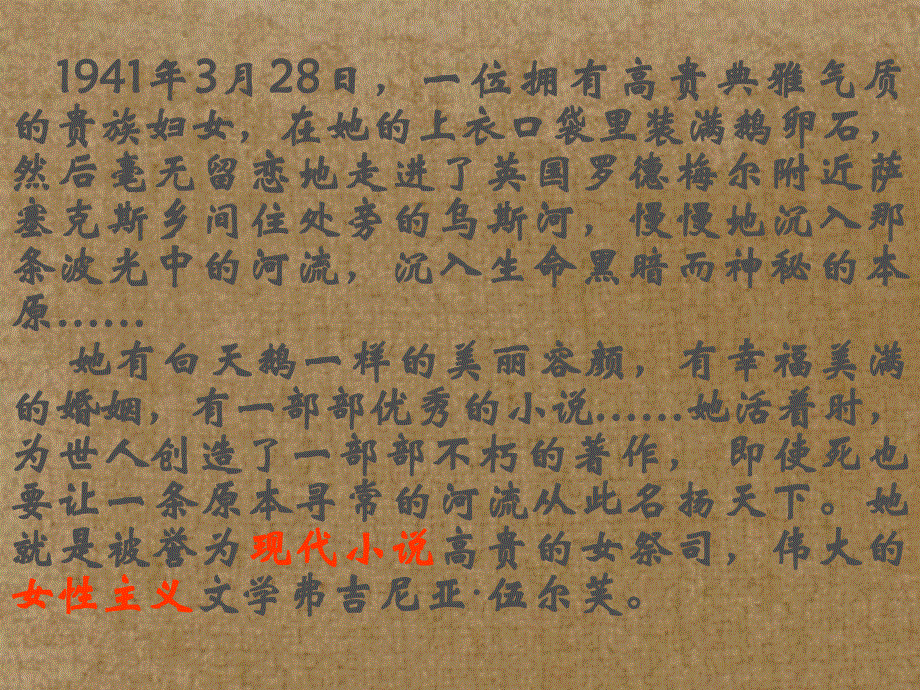 1941年3月28日，一位拥有高贵典雅气质
的贵族妇女，在她的上衣口袋里装满鹅卵石，
然后毫无留恋地走进了英国罗德梅尔附近萨
塞克斯乡间住处旁的乌斯河，慢慢地沉入那
条波光中的河流，沉入生命黑暗而神秘的本
原……
她有白天鹅一样的美丽容颜，有幸福美满
的婚姻，有一部部优秀的小说……她活着时，
为世人创造了一部部不朽的著作， 即使死也
要让一条原本寻常的河流从此名扬天下。她
就是被誉为现代小说高贵的女祭司，伟大的
女性主义文学弗吉尼亚·伍尔芙。